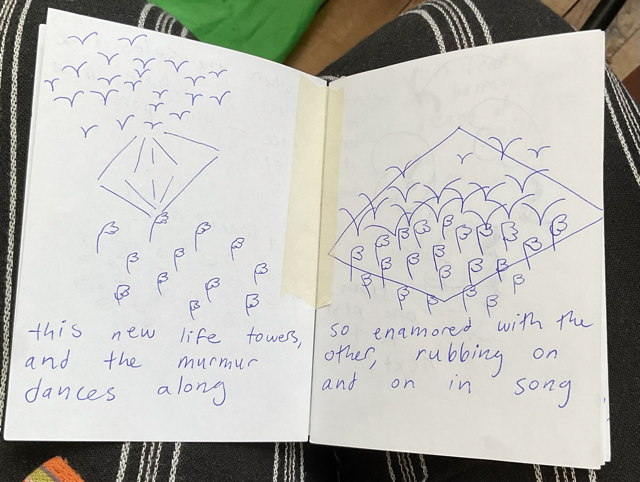 this new life towers,
and the murmur
dances along
so enamored with the
other, rubbing on
and on in song